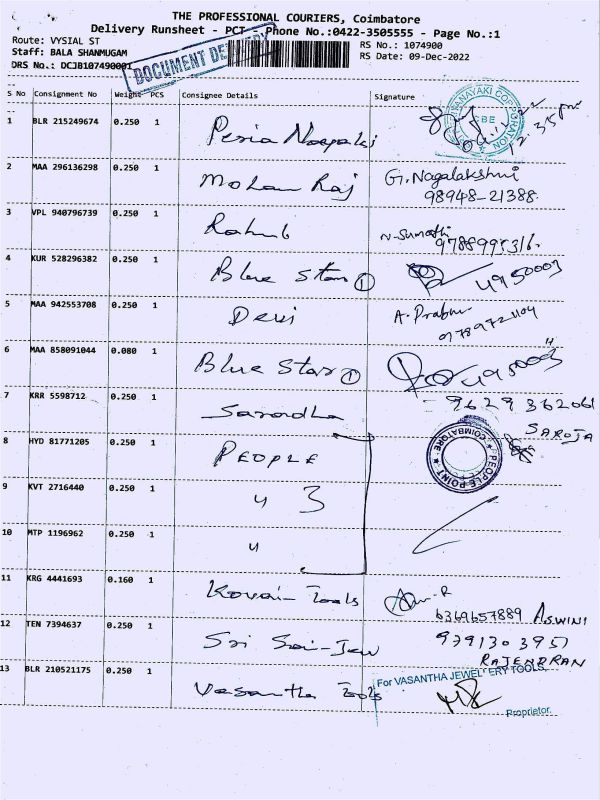 THE PROFESSIONAL COURIERS, Coimbatore
Delivery Runsheet - PCT - Phone No.:0422-3505555 - Page No.:1
Route: VYSIAL ST RS No.: 1074900
Staff: BALA SHANMUGAM RS Date: 09-Dec-2022
DRS No.: DCJB107490001
DOCUMENT DELIVERY
S No Consignment No Weight PCS Consignee Details Signature
1 BLR 215249674 0.250 1 Peria
CBE
12.35 pm
2 MAA 296136298 0.250 1 Mohan Raj G. Nagalakshmi
98948-21388
3 VPL 940796739 0.250 1 Rahul N-Sumathi
4 KUR 528296382 0.250 1 Blue Star ① 4950003
5 MAA 942553708 0.250 1 Devi A. Prabhu
6 MAA 858091044 0.080 1 Blue Star ① 4950003
7 KRR 5598712 0.250 1 Saradha 9629362061
SAROJA
8 HYD 81771205 0.250 1 PEOPLE
PEOPLE POINT ★ COIMBATORE ★
9 KVT 2716440 0.250 1 " 3
10 MTP 1196962 0.250 1 "
11 KRG 4441693 0.160 1 Kovai Tools
6369657889 ASWINI
12 TEN 7394637 0.250 1 Sri Sai-Jew 9791303951
RAJENDRAN
13 BLR 210521175 0.250 1 Vasantha Tools For VASANTHA JEWELLERY TOOLS,
Proprietor.